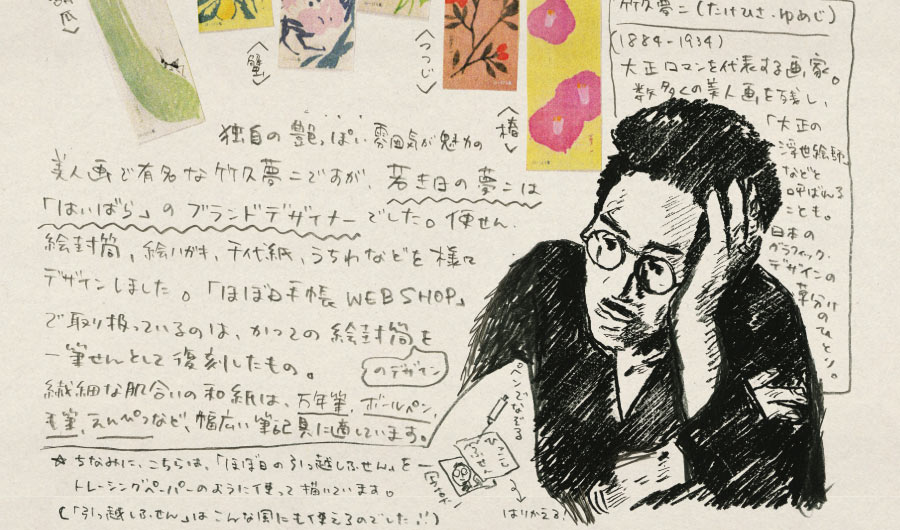 胡瓜〉
〈蟹〉
〈つつじ〉
〈椿〉
竹久夢二(たけひさ・ゆめじ)
(1884-1934)
大正ロマンを代表する画家。
数多くの美人画を残し、
「大正の
浮世絵師」
などと
呼ばれる
ことも。
日本の
グラフィック・
デザインの
草分け
のひとり。
独自の艶っぽい雰囲気が魅力の
美人画で有名な竹久夢二ですが、若き日の夢二は
「はいばら」のブランドデザイナーでした。便せん、
絵封筒、絵ハガキ、千代紙、うちわなどを様々
デザインしました。「ほぼ日手帳WEBSHOP」
で取り扱っているのは、かつての絵封筒を
のデザイン
一筆せんとして復刻したもの。
繊細な肌合いの和紙は、万年筆、ボールペン、
毛筆、えんぴつなど、幅広い筆記具に適しています。
☆ちなみに、こちらは、「ほぼ日の引っ越しふせん」を
トレーシングペーパーのように使って描いています。
(「引っ越しふせん」はこんな風にも使えるのでした!!)
ペンでなぞる
はりかえる!